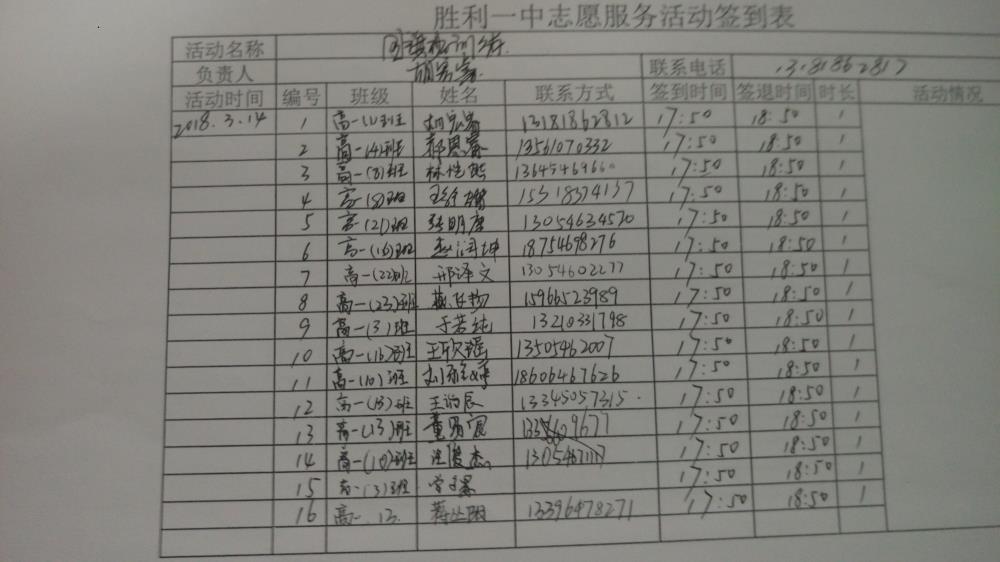 胜利一中志愿服务活动签到表
活动名称
负责人 联系电话 13181862817
活动时间 编号 班级 姓名 联系方式 签到时间 签退时间 时长 活动情况
2018.3.14 1 高一(1)班 13181862812 17:50 18:50 1
2 高一(4)班 郝恩睿 13561070332 17:50 18:50 1
3 高一(8)班 13645469660 17:50 18:50 1
4 高一(8)班 15318374137 17:50 18:50 1
5 高一(21)班 张明康 13054634570 17:50 18:50 1
6 高一(16)班 赵润坤 18754698276 17:50 18:50 1
7 高一(22)班 邢泽文 13054602277 17:50 18:50 1
8 高一(23)班 15966523989 17:50 18:50 1
9 高一(3)班 于若纯 13210331798 17:50 18:50 1
10 高一(16)班 王欣瑶 13505462007 17:50 18:50 1
11 高一(10)班 18606467626 17:50 18:50 1
12 高一(13)班 13345057315 17:50 18:50 1
13 高一(13)班 17:50 18:50 1
14 高一(10)班 17:50 18:50 1
15 高一(3)班 17:50 18:50 1
16 高一.13. 蒋丛阳 13396478271 17:50 18:50 1